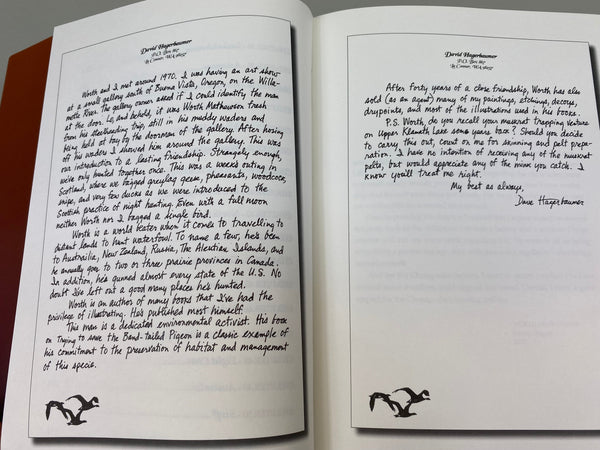 David Hagerbaumer
P.O. Box 867
La Conner, WA 98257
Worth and I met around 1970. I was having an art show
at a small gallery south of Buena Vista, Oregon, on the Willa-
mette River. The gallery owner asked if I could identify the man
at the door. Lo, and behold, it was Worth Mathewson fresh
from his steelheading trip, still in his muddy waders and
being held at bay by the doorman of the gallery. After horsing
off his waders I showed him around the gallery. This was
our introduction to a lasting friendship. Strangely enough,
we've only hunted together once. This was a weeks outing in
Scotland, where we bagged greylag geese, pheasants, woodcock,
snipe, and very few ducks as we were introduced to the
Scottish practice of night hunting. Even with a full moon
neither Worth nor I bagged a single bird.
Worth is a world beater when it comes to travelling to
distant lands to hunt waterfowl. To name a few, he's been
to Austrailia, New Zealand, Russia, The Aleutian Islands, and
he annually goes to two or three prairie provinces in Canada.
In addition, he's gunned almost every state of the U.S. No
doubt I've left out a good many places he's hunted.
Worth is an author of many books that I've had the
privilege of illustrating. He's published most himself.
This man is a dedicated environmental activist. His book
on trying to save the Band-tailed Pigeon is a classic example of
his commitment to the preservation of habitat and management
of this specie.
David Hagerbaumer
P.O. Box 867
La Conner, WA 98257
After forty years of a close friendship, Worth has also
sold (as an agent) many of my paintings, etchings, decoys,
drypoints, and most of the illustrations used in his books.
P.S. Worth, do you recall your muskrat trapping venture
on Upper Klamath Lake some years back? Should you decide
to carry this out, count on me for skinning and pelt prepa-
ration. I have no intention of receiving any of the muskrat
pelts, but would appreciate any of the mink you catch. I
know you'll treat me right.
My best as always,
Dave Hagerbaumer